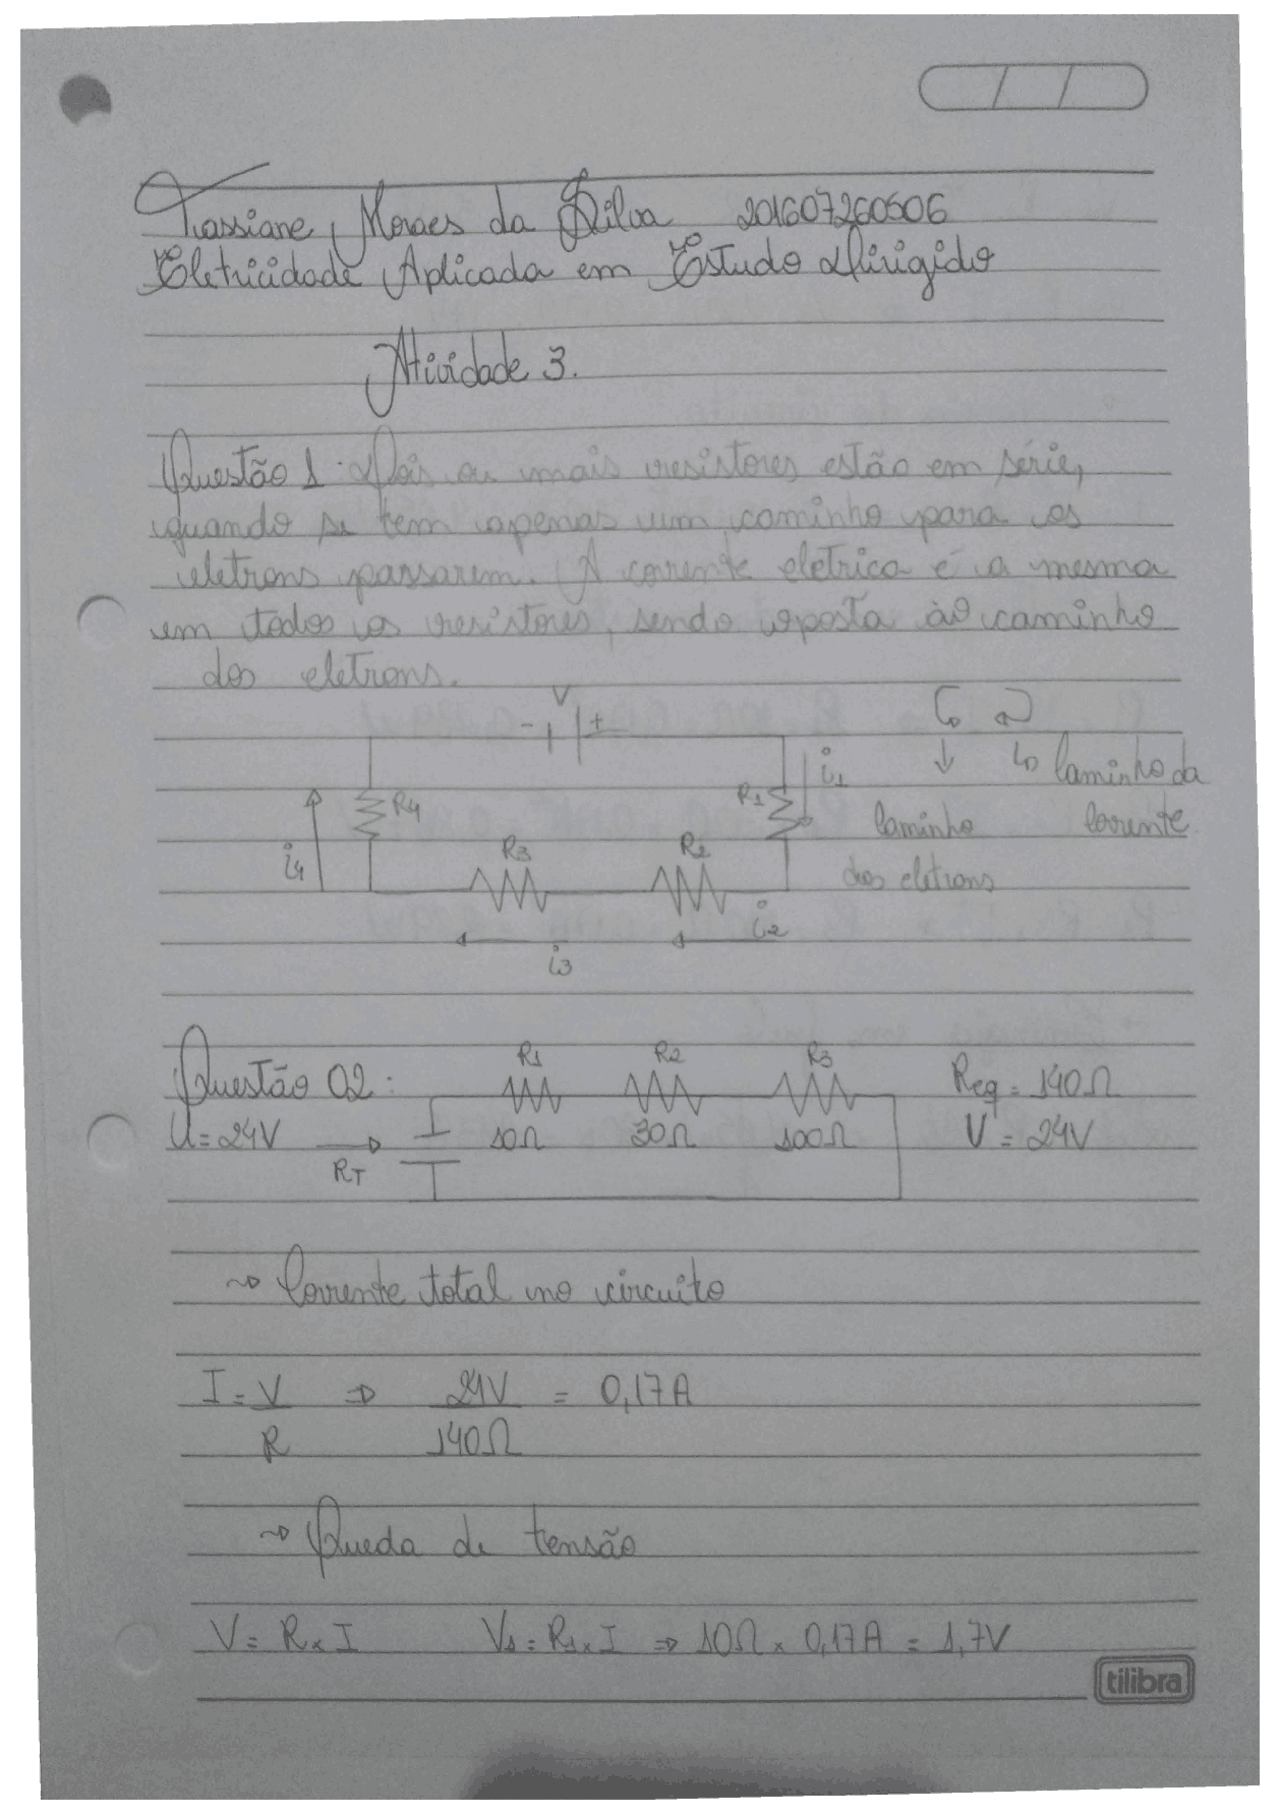 Tassiane Moraes da Silva 201607260506
Eletricidade Aplicada em Estudo Dirigido
Atividade 3.
Questão 1 - Dois ou mais resistores estão em série,
quando se tem apenas um caminho para os
eletrons passarem. A corrente eletrica é a mesma
em todos os resistores, sendo oposta ào caminho
dos eletrons.
V
- +
i1
R4
R1
Caminho da
Corrente
Caminho
dos eletrons
i4
R3
R2
i2
i3
Questão 02:
R1 R2 R3
Req = 140Ω
U = 24V
10Ω 30Ω 100Ω
V = 24V
RT
~> Corrente total no circuito
I = V/R => 24V/140Ω = 0,17A
~> Queda de tensão
V = R x I V1 = R1 x I => 10Ω x 0,17A = 1,7V
tilibra